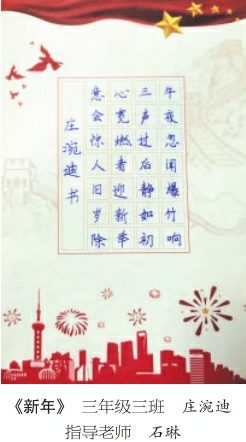 午夜忽闻爆竹响
三声过后静如初
心宽燃者迎新举
意会惊人旧岁除
庄涴迪书
《新年》 三年级三班 庄涴迪
指导老师 石琳